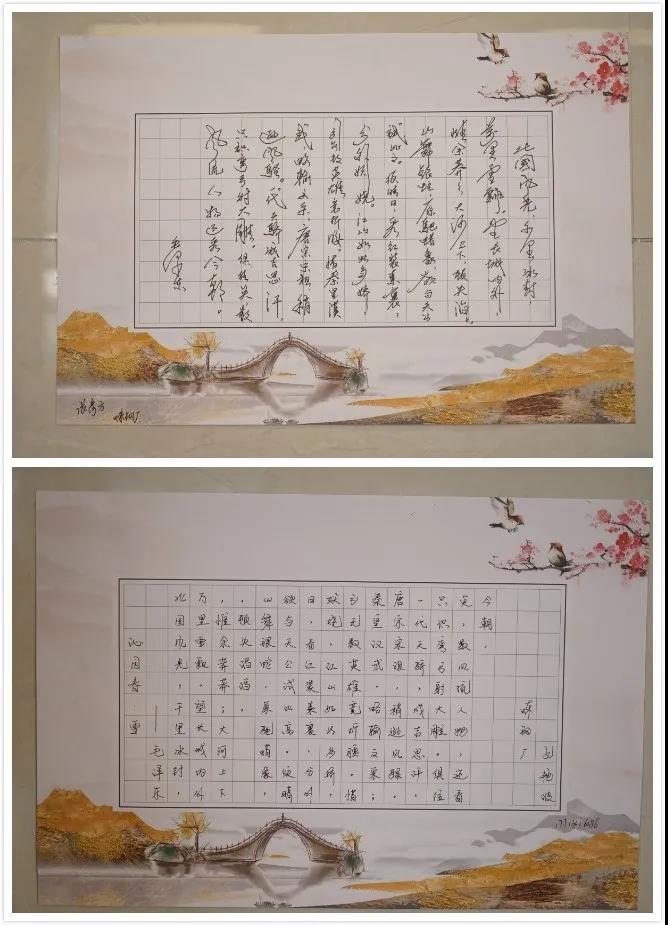 北国风光,千里冰封,
万里雪飘。望长城内外,
惟余莽莽,大河上下,顿失滔。
山舞银蛇,原驰蜡象,欲与天公
试比高。须晴日,看红装素裹,
分外妖娆。江山如此多娇,
引无数英雄竞折腰。惜秦皇汉
武,略输文采;唐宗宋祖,稍
逊风骚。一代天骄,成吉思汗,
只识弯弓射大雕。俱往矣,数
风流人物,还看今朝。
毛泽东
味精厂
沁园春·雪
——毛泽东
北国风光,千里冰封,
万里雪飘。望长城内外
,惟余莽莽;大河上下
,顿失滔滔。
山舞银蛇,原驰蜡象,
欲与天公试比高。须晴
日,看红装素裹,分外
妖娆。江山如此多娇,
引无数英雄竞折腰。惜
秦皇汉武,略输文采;
唐宗宋祖,稍逊风骚。
一代天骄,成吉思汗,
只识弯弓射大雕。俱往
矣,数风流人物,还看
今朝。
味精厂